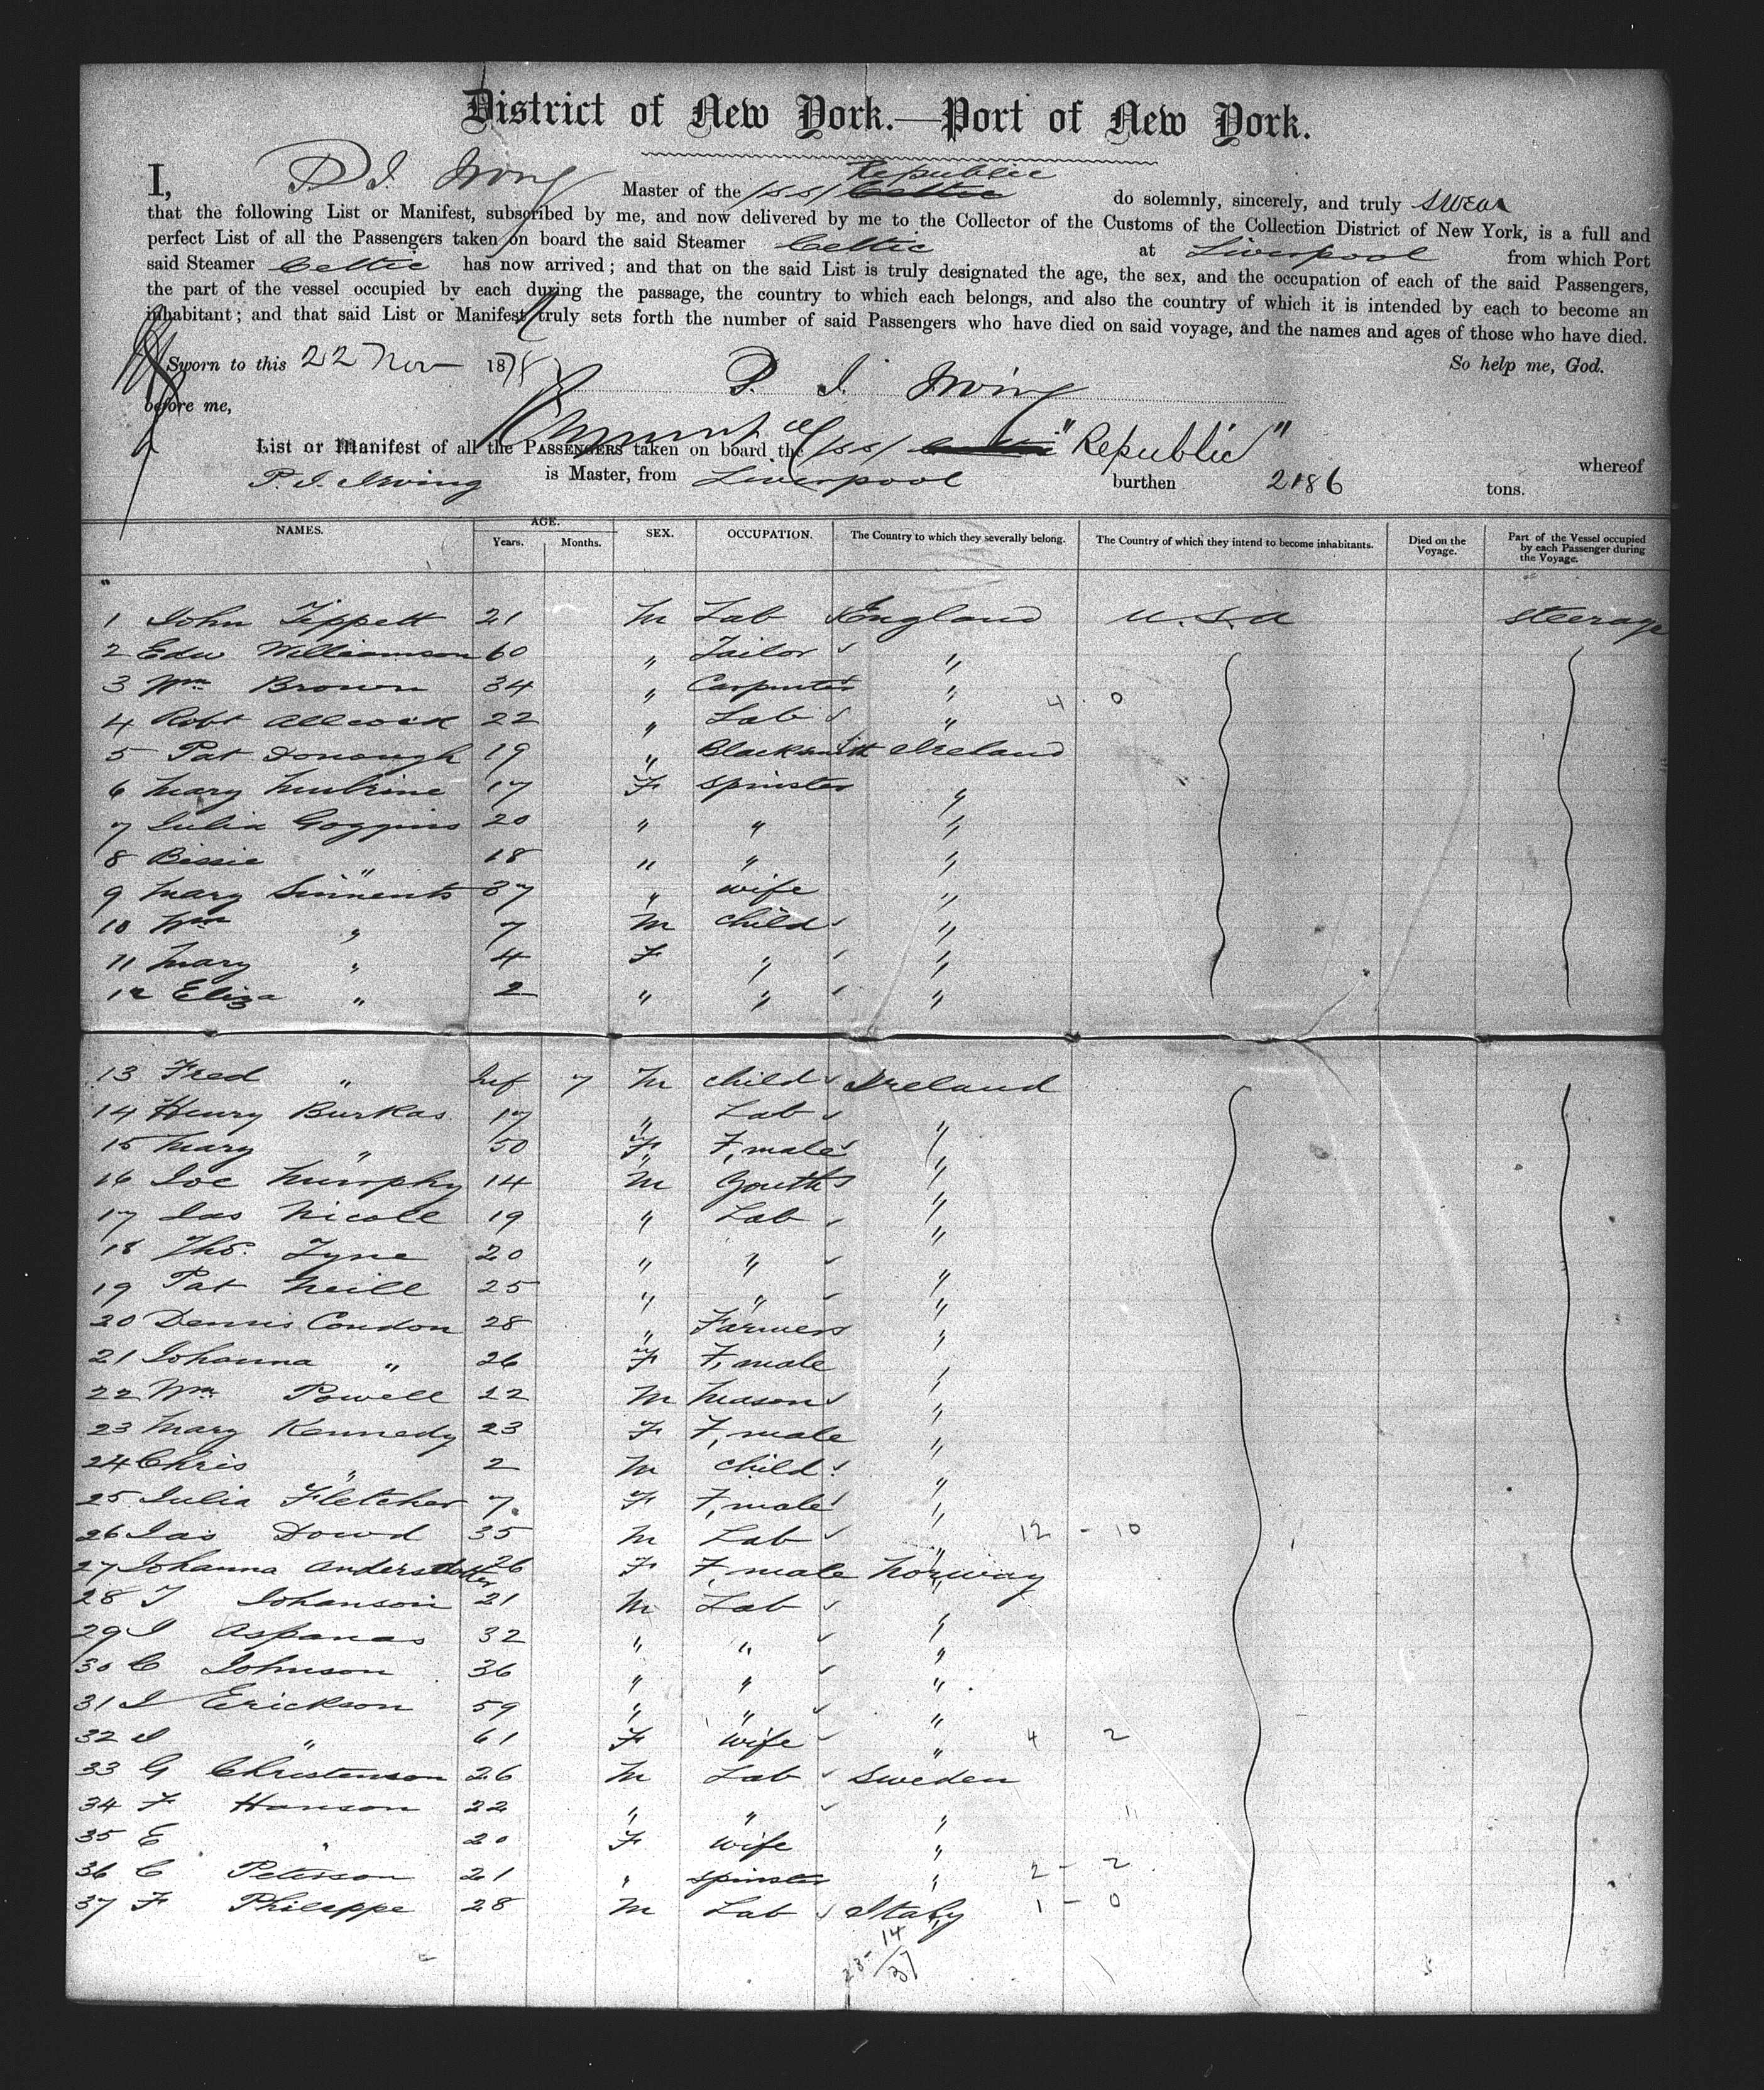 District of New York.—Port of New York.
I, P. I. Irving Master of the (s.s) Celtic Republic do solemnly, sincerely, and truly swear
that the following List or Manifest, subscribed by me, and now delivered by me to the Collector of the Customs of the Collection District of New York, is a full and
perfect List of all the Passengers taken on board the said Steamer Celtic at Liverpool from which Port
said Steamer Celtic has now arrived; and that on the said List is truly designated the age, the sex, and the occupation of each of the said Passengers,
the part of the vessel occupied by each during the passage, the country to which each belongs, and also the country of which it is intended by each to become an
inhabitant; and that said List or Manifest truly sets forth the number of said Passengers who have died on said voyage, and the names and ages of those who have died.
Sworn to this 22 Nov 1878 So help me, God.
before me, P. I. Irving
List or Manifest of all the PASSENGERS taken on board the (s.s) "Republic" whereof
P. I. Irving is Master, from Liverpool burthen 2186 tons.
NAMES. AGE. Years. Months. SEX. OCCUPATION. The Country to which they severally belong. The Country of which they intend to become inhabitants. Died on the Voyage. Part of the Vessel occupied by each Passenger during the Voyage.
1 John Tippett 21 M Lab England U.S.A Steerage
2 Edw Williamson 60 " Tailor "
3 Wm Brown 34 " Carpenter " 4 0
4 Robt Allcock 22 " Lab "
5 Pat Donough 19 " Blacksmith Ireland
6 Mary 17 F Spinster "
7 Julia Goggins 20 " " "
8 Bessie " 18 " " "
9 Mary Sinnents 37 " wife "
10 Wm " 7 M child "
11 Mary " 4 F " "
12 Eliza " 2 " " "
13 Fred " Inf 7 M child Ireland
14 Henry Burkas 17 " Lab "
15 Mary " 50 F F,male "
16 Joe Murphy 14 M Youth "
17 Jas Nicole 19 " Lab "
18 Thos. Tyne 20 " " "
19 Pat Neill 25 " " "
20 Dennis Condon 28 " Farmer "
21 Johanna " 26 F F,male "
22 Wm Powell 22 M Mason "
23 Mary Kennedy 23 F F,male "
24 Chris " 2 M child "
25 Julia Fletcher 7 F F,male "
26 Jas Dowd 35 M Lab " 12 - 10
27 Johanna Andersdotter 26 F F,male Norway
28 J Johanson 21 M Lab "
29 J Aspanas 32 " " "
30 C Johnson 36 " " "
31 J Erickson 59 " " "
32 J " 61 F wife " 4 2
33 G Christenson 26 M Lab Sweden
34 F Hanson 22 " " "
35 E " 20 F wife "
36 C Peterson 21 " spinster " 2 - 2
37 F Phileppe 28 M Lab Italy 1 - 0
23 - 14
37